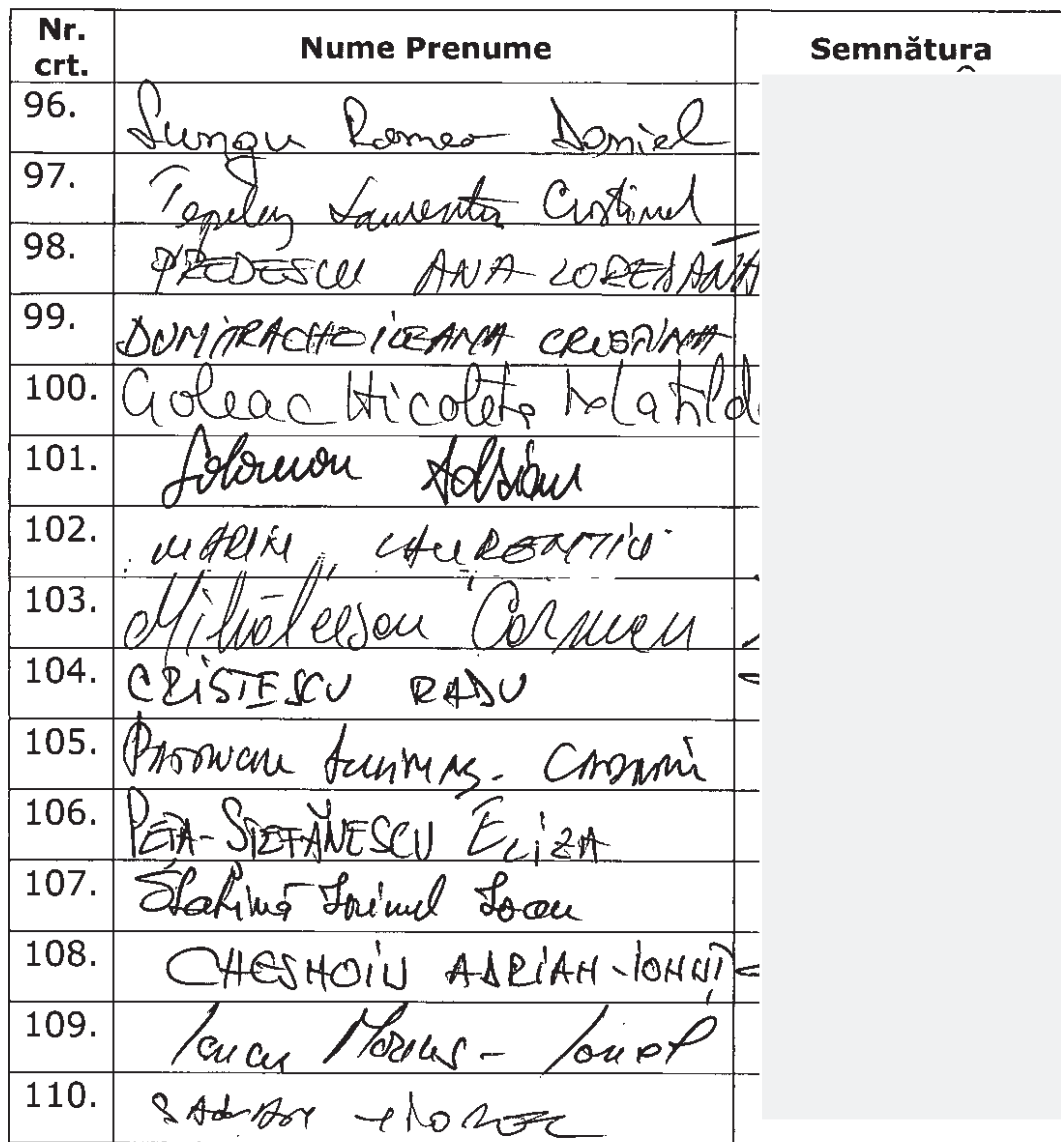 Nr. crt. Nume Prenume Semnătura
96. Lungu Romeo Daniel
97. Laurentiu Costinel
98. PREDESCU ANA LOREDANA
99. DUMITRACHE ILEANA CRISTINA
100. Goleac Nicoleta Matild
101. Solomon Adrian
102. MARIN LAURENTIU
103. Mihăleescu Carmen
104. CRISTESCU RADU
105.
106. PETA-ȘTEFĂNESCU ELIZA
107. Slatină Sorinel Ioan
108. CHESNOIU ADRIAN-IONUȚ
109. Iancu Marius-Ionel
110. VIOREL